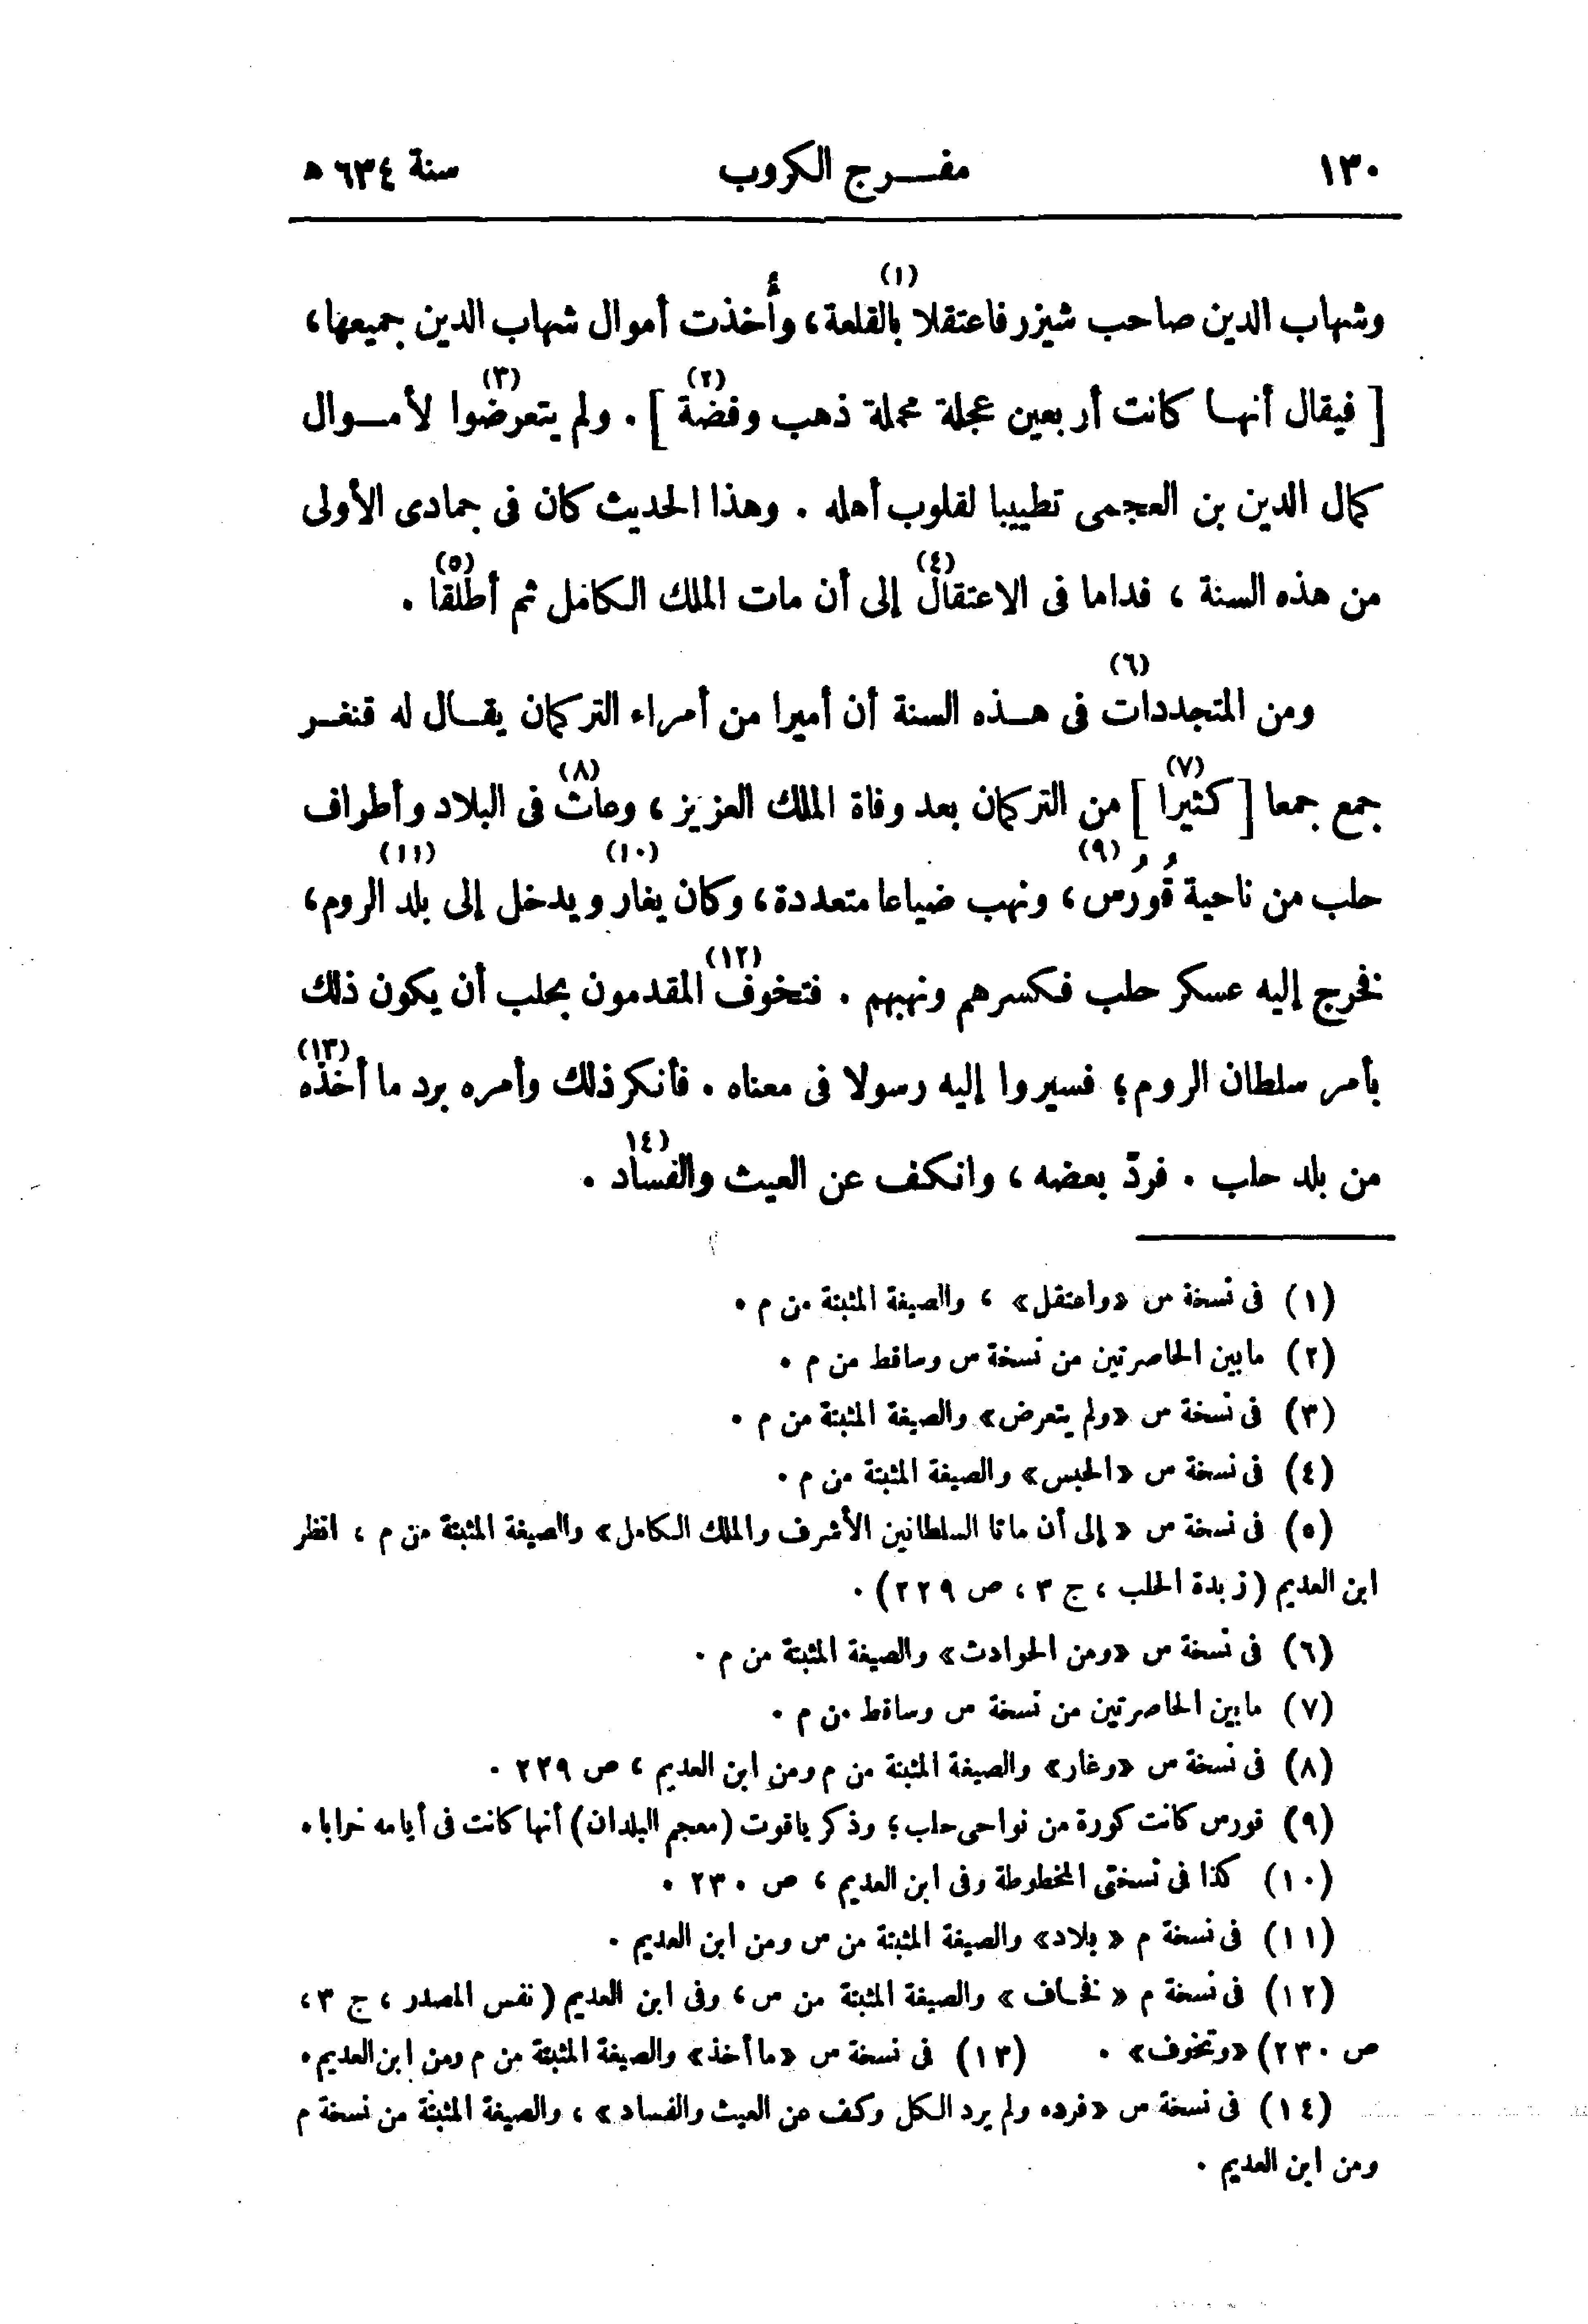 ١٣٠ مفـــرج الكروب سنة ٦٣٤ ه
وشهاب الدين صاحب شيزر فاعتقلا (١) بالقلعة ، وأُخذت أموال شهاب الدين جميعها ،
[ فيقال أنهـا كانت أربعين عجلة محملة ذهب وفضة (٢) ] . ولم يتعرضوا (٣) لأمـوال
كمال الدين بن العجمى تطييبا لقلوب أهله . وهذا الحديث كان فى جمادى الأولى
من هذه السنة ، فداما فى الاعتقال (٤) إلى أن مات الملك الكامل ثم أطلقا (٥) .
ومن المتجددات (٦) فى هـذه السنة أن أميرا من أمراء التركمان يقـال له قنغـر
جمع جمعا [ كثيرا (٧) ] من التركمان بعد وفاة الملك العزيز ، وعاث (٨) فى البلاد وأطراف
حلب من ناحية قُورُس (٩) ، ونهب ضياعا متعددة ، وكان يغار (١٠) ويدخل إلى بلد (١١) الروم ،
فخرج إليه عسكر حلب فكسرهم ونهبهم . فتخوف (١٢) المقدمون بحلب أن يكون ذلك
بأمر سلطان الروم ؛ فسيروا إليه رسولا فى معناه . فأنكر ذلك وأمره برد ما أخذه (١٣)
من بلد حلب . فردّ بعضه ، وانكف عن العيث والفساد (١٤ .
(١) فى نسخة س «واعتقل» ، والصيغة المثبتة من م .
(٢) ما بين الحاصرتين من نسخة س وساقط من م .
(٣) فى نسخة س «ولم يتعرض» والصيغة المثبتة من م .
(٤) فى نسخة س «الحبس» والصيغة المثبتة من م .
(٥) فى نسخة س « إلى أن ماتا السلطانين الأشرف والملك الكامل» والصيغة المثبتة من م ، انظر
ابن العديم (زبدة الحلب ، ج ٣ ، ص ٢٢٩) .
(٦) فى نسخة س «ومن الحوادث» والصيغة المثبتة من م .
(٧) ما بين الحاصرتين من نسخة س وساقط من م .
(٨) فى نسخة س «وغار» والصيغة المثبتة من م ومن ابن العديم ، ص ٢٢٩ .
(٩) قورس كانت كورة من نواحى حلب ؛ وذكر ياقوت (معجم البلدان) أنها كانت فى أيامه خرابا .
(١٠) كذا فى نسختى المخطوطة وفى ابن العديم ، ص ٢٣٠ .
(١١) فى نسخة م « بلاد» والصيغة المثبتة من س ومن ابن العديم .
(١٢) فى نسخة م « فخـاف » والصيغة المثبتة من س ، وفى ابن العديم (نفس المصدر ، ج ٣ ،
ص ٢٣٠) «وتخوف» . (١٣) فى نسخة س «ما أخذ» والصيغة المثبتة من م ومن ابن العديم .
(١٤) فى نسخة س «فرده ولم يرد الكل وكف عن العيث والفساد» ، والصيغة المثبتة من نسخة م
ومن ابن العديم .